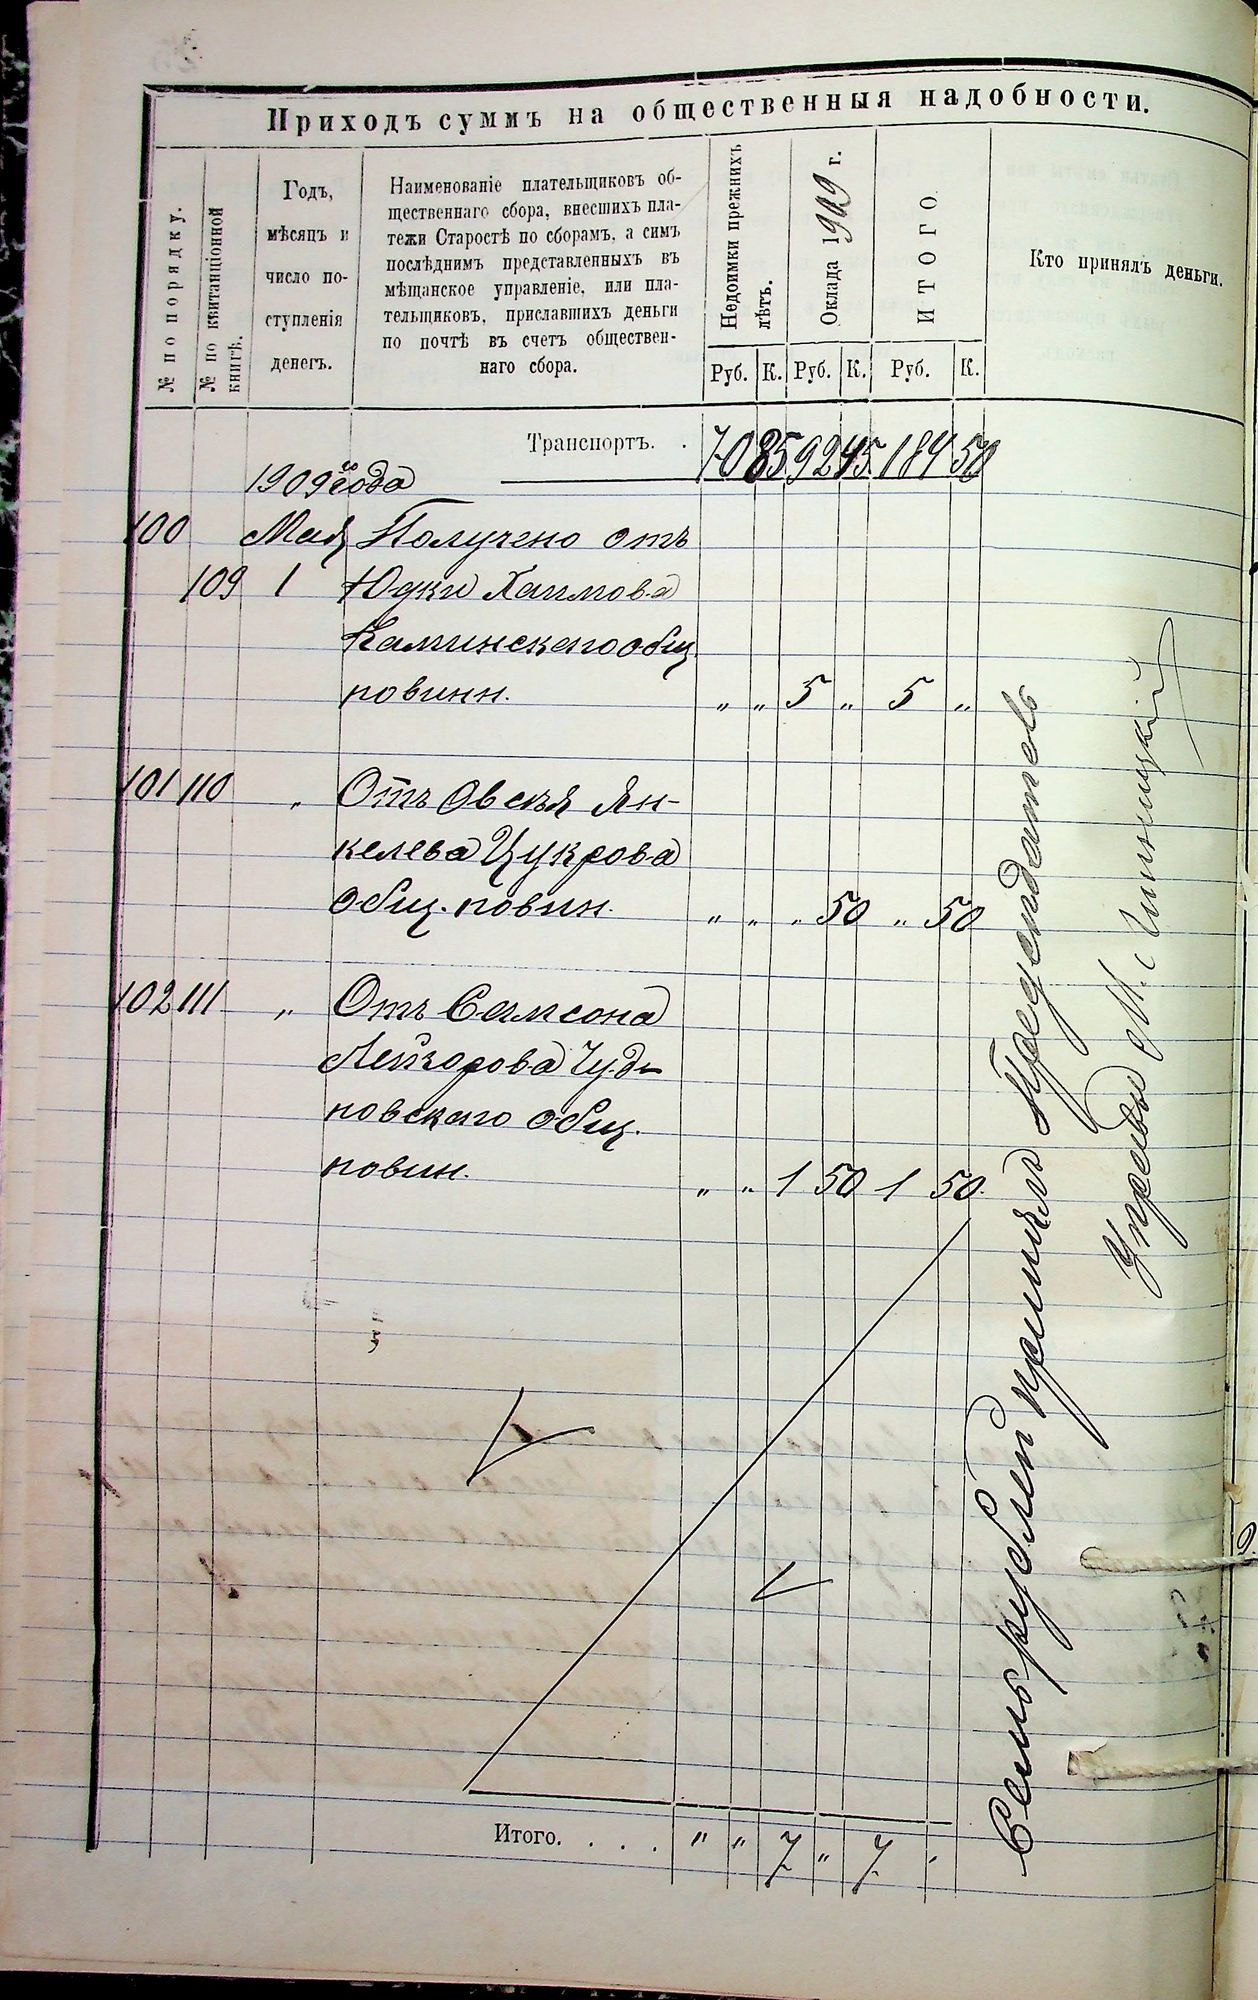 Приходъ суммъ на общественныя надобности.
№ по порядку.
№ по квитанціонной
книгѣ.
Годъ,
мѣсяцъ и
число по-
ступленія
денегъ.
Наименованіе плательщиковъ об-
щественнаго сбора, внесшихъ пла-
тежи Старостѣ по сборамъ, а симъ
послѣднимъ представленныхъ въ
мѣщанское управленіе, или пла-
тельщиковъ, приславшихъ деньги
по почтѣ въ счетъ обществен-
наго сбора.
Недоимки прежнихъ
лѣтъ.
Оклада 1909 г.
ИТОГО
Кто принялъ деньги.
Руб. К. Руб. К. Руб. К.
Транспортъ. . 70 85 92 45 184 50
1909 года
100 Мая Получено отъ
109 1 Юдки Хаимова
Каминскаго общ.
повинн. „ „ 5 „ 5 „
101 110 „ Отъ Овсѣя Ян-
келева Цукрова
общ. повин. „ „ „ 50 „ 50
102 111 „ Отъ Самсона
Лейзорова Чуд-
новскаго общ.
повин. „ „ 1 50 1 50.
Итого. . . . „ „ 7 „ 7 „
Семь рублей принялъ Председатель
Управы М.